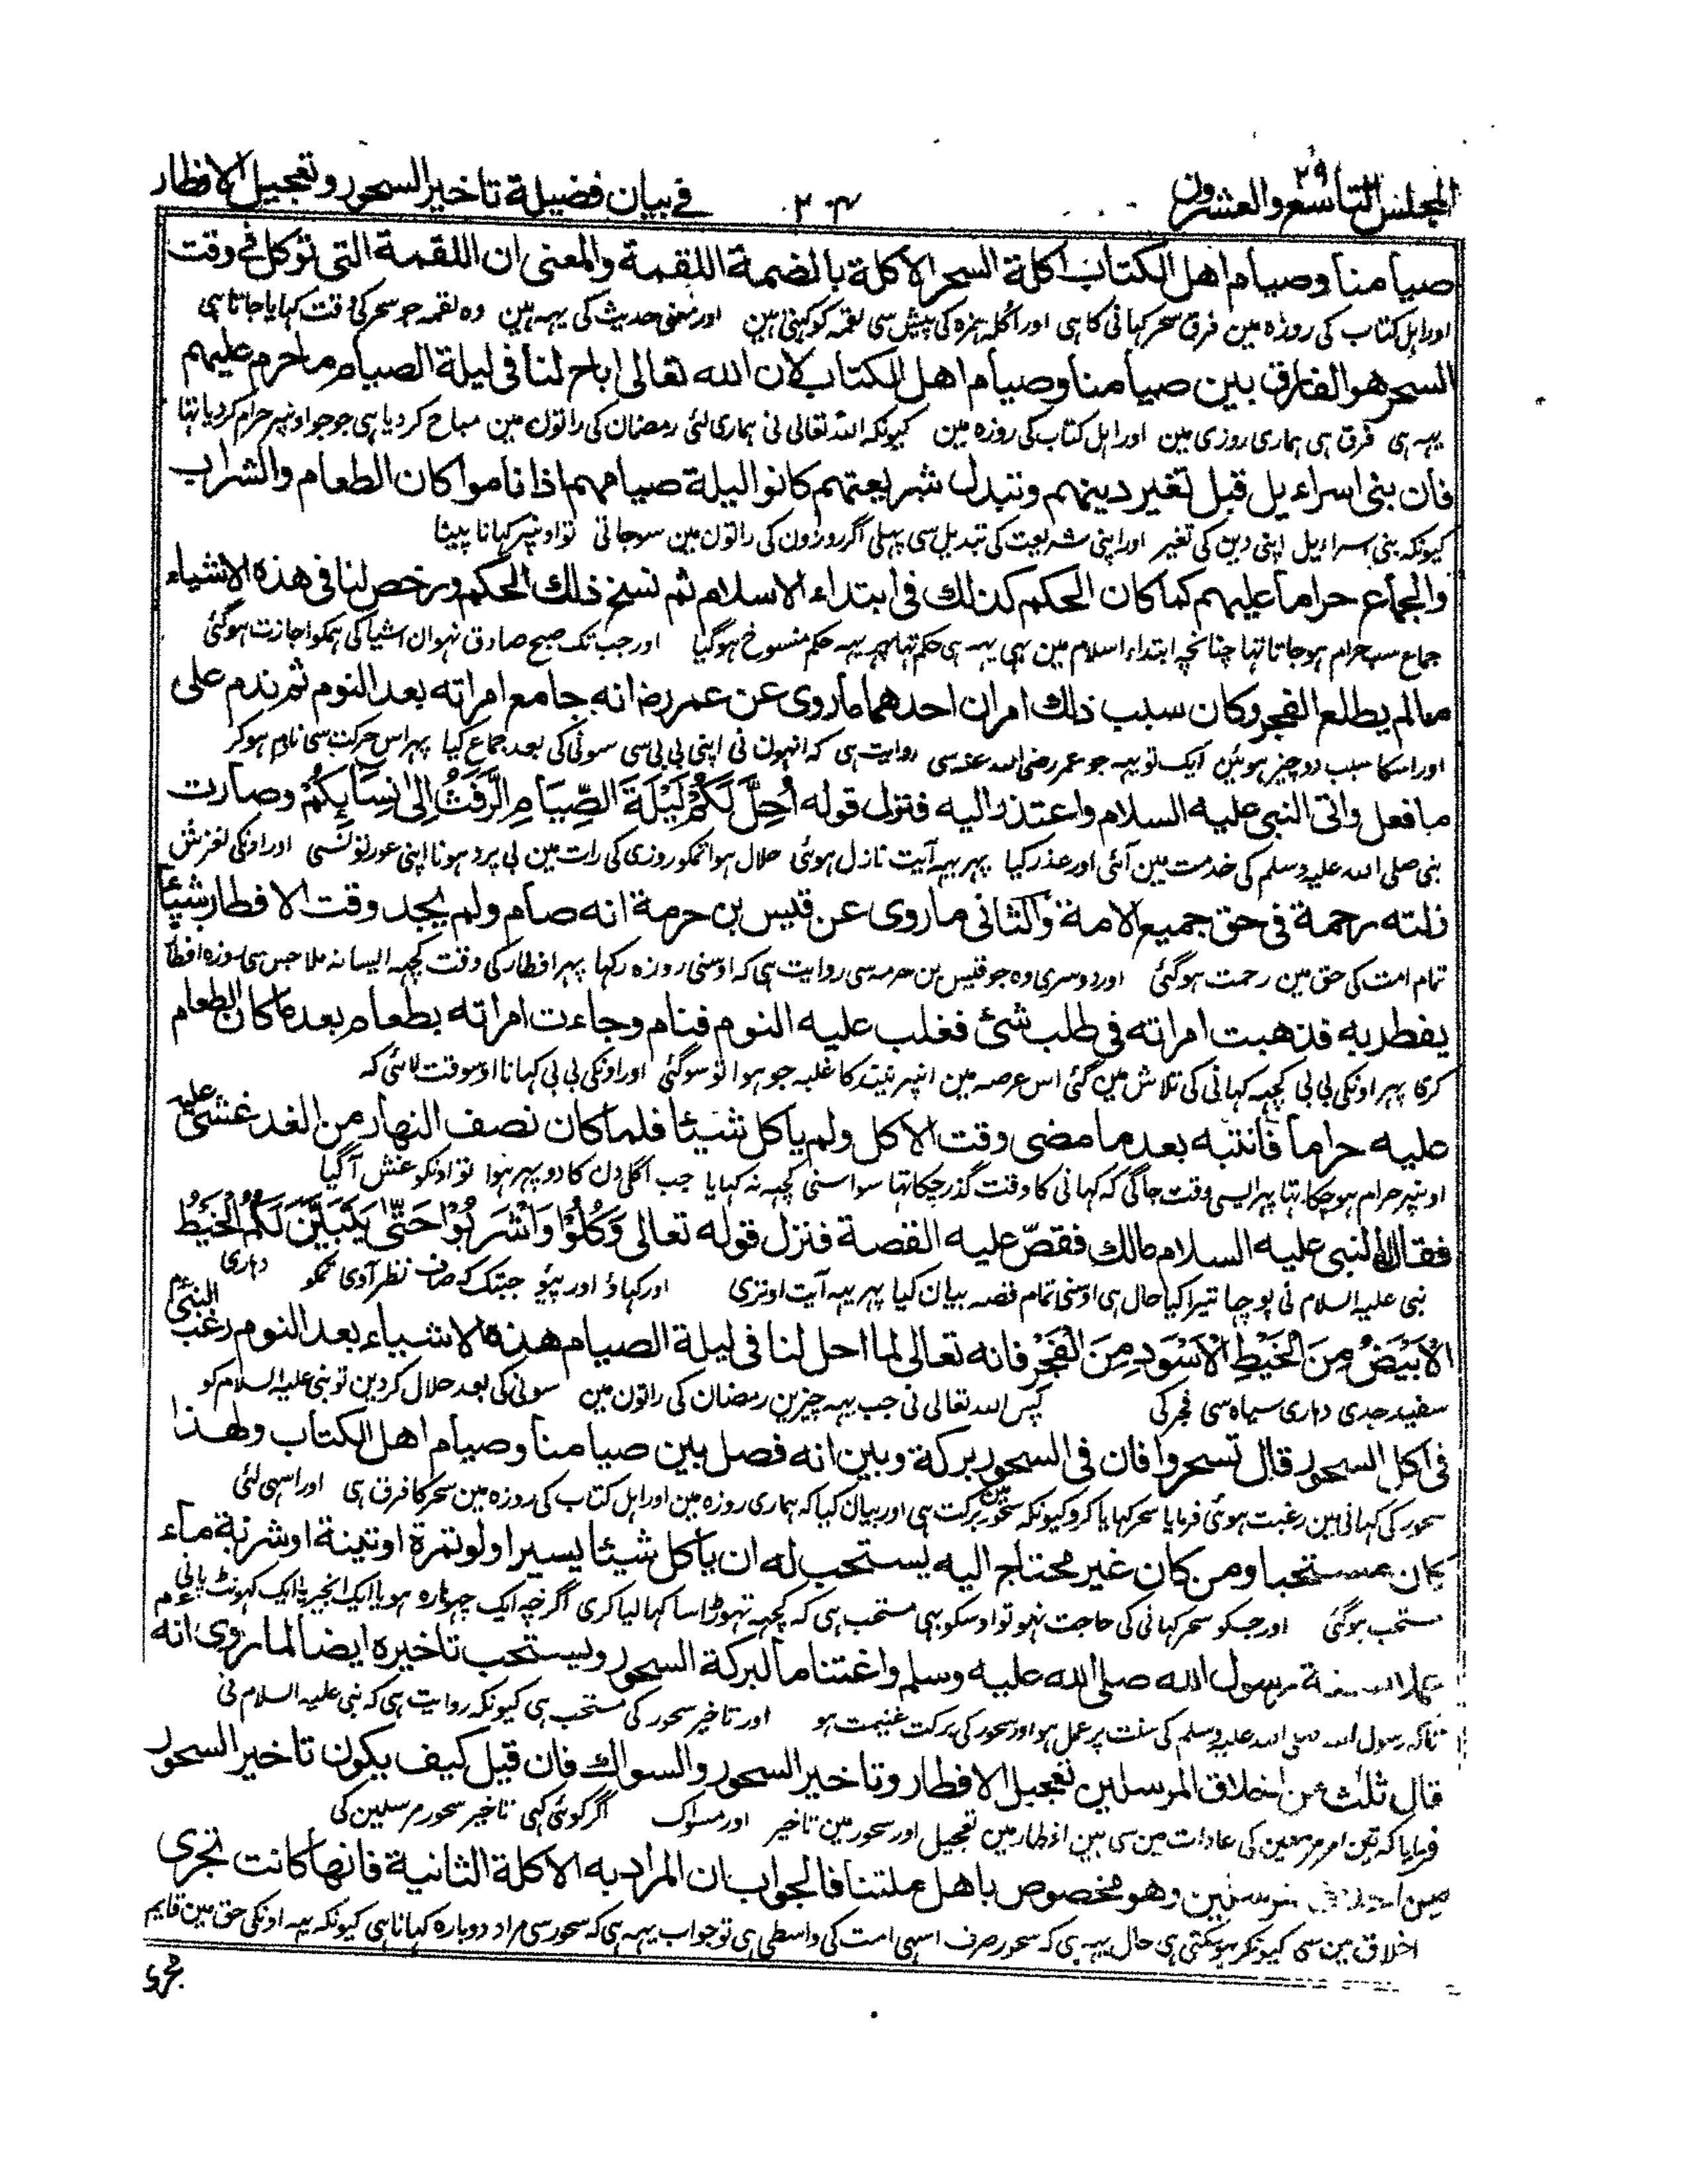 المجلس التاسع والعشرون ٢٩
٢٠٤
في بيان فضيلة تاخير السحور وتعجيل الافطار
صيامنا وصيام اهل الكتاب اكلة السحر الاكلة بالضمة اللقمة والمعنى ان اللقمة التى توكل في وقت
اور اہل کتاب کی روزہ مین فرق سحر کہانی کا ہی اور اُکلہ ہمزہ کی پیش سی لقمہ کو کہتی ہین اور معنی حدیث کی یہہ ہین وہ لقمہ جو سحر کی وقت کہایا جاتا ہی
السحر هو الفارق بين صيامنا وصيام اهل الكتاب لان الله تعالى اباح لنا فى ليلة الصيام ما حرم عليهم
یہہ ہی فرق ہی ہماری روزی مین اور اہل کتاب کی روزہ مین کیونکہ اللہ تعالی نی ہماری لئی رمضان کی راتون مین مباح کر دیا ہی جو جو اونپر حرام کر دیا تہا
فان بنى اسراءيل قبل تغير دينهم وتبدل شريعتهم كانوا ليلة صيامهم اذا ناموا كان الطعام والشراب
کیونکہ بنی اسرایل اپنی دین کی تغیر اور اپنی شریعت کی تبدیل سی پہلی اگر روزون کی راتون مین سو جاتی تو اونپر کہانا پینا
والجماع حراما عليهم كما كان الحكم كذلك فى ابتداء الاسلام ثم نسخ ذلك الحكم ورخص لنا فى هذه الاشياء
جماع سب حرام ہو جاتا تہا چنانچہ ابتداء اسلام مین بہی یہہ ہی حکم تہا پہر یہہ حکم منسوخ ہو گیا اور جب تک صبح صادق نہو ان اشیا کی ہمکو اجازت ہو گئی
مالم يطلع الفجر وكان سبب ذلك امران احدهما ما روى عن عمر رضـ انه جامع امراته بعد النوم ثم ندم على
اور اسکا سبب دو چیز ہوئین ایک تو یہہ جو عمر رضی اللہ عنہ سی روایت ہی کہ انہون نی اپنی بی بی سی سونی کی بعد جماع کیا پہر اس حرکت سی نادم ہو کر
ما فعل واتى النبى عليه السلام واعتذر اليه فنزل قوله أُحِلَّ لَكُمْ لَيْلَةَ الصِّيَامِ الرَّفَثُ إِلى نِسَائِكُمْ وصارت
نبی صلی اللہ علیہ وسلم کی خدمت مین آئی اور عذر کیا پہر یہہ آیت نازل ہوئی حلال ہوا تمکو روزی کی رات مین بی پرد ہونا اپنی عورتونسی اور اونکی لغزش
زلته رحمة فى حق جميع الامة والثانى ما روى عن قيس بن حرمة انه صام ولم يجد وقت الافطار شيئا
تمام امت کی حق مین رحمت ہو گئی اور دوسری وہ جو قیس بن حرمہ سی روایت ہی کہ اوسنی روزہ رکہا پہر افطار کی وقت کچہہ ایسا نہ ملا جس سی روزہ افطار
يفطر به فذهبت امراته فى طلب شئ فغلب عليه النوم فنام وجاءت امراته بطعام بعد ما كان الطعام
کری پہر اونکی بی بی کچہہ کہانی کی تلاش مین گئی اس عرصہ مین انپر نیند کا غلبہ جو ہوا تو سو گئی اور اونکی بی بی کہانا اوسوقت لائی کہ
عليه حراما فانتبه بعد ما مضى وقت الاكل ولم ياكل شيئا فلما كان نصف النهار من الغد غشى عليه
اونپر حرام ہو چکا تہا پہر ایسی وقت جاگی کہ کہانی کا وقت گذر چکا تہا سو اسنی کچہہ نہ کہایا جب اگلی دن کا دوپہر ہوا تو اونکو غش آ گیا
فقال له النبى عليه السلام مالك فقصّ عليه القصة فنزل قوله تعالى وَكُلُوْا وَاشْرَبُوْا حَتّٰى يَتَبَيَّنَ لَكُمُ الْخَيْطُ
نبی علیہ السلام نی پوچہا تیرا کیا حال ہی اوسنی تمام قصہ بیان کیا پہر یہہ آیت اوتری اور کہاؤ اور پیو جبتک کہ صاف نظر آوی تمکو دہاری
الْاَبْيَضُ مِنَ الْخَيْطِ الْاَسْوَدِ مِنَ الْفَجْرِ فانه تعالى لما احل لنا فى ليلة الصيام هذه الاشياء بعد النوم رغب النبى عم
سفید جدی دہاری سیاہ سی فجر کی پس اللہ تعالی نی جب یہہ چیزین رمضان کی راتون مین سونی کی بعد حلال کر دین تو نبی علیہ السلام کو
فى اكل السحور قال تسحروا فان فى السحور بركة وبين انه فصل بين صيامنا وصيام اهل الكتاب ولهذا
سحور کی کہانی مین رغبت ہوئی فرمایا سحر کہایا کرو کیونکہ سحور مین برکت ہی اور بیان کیا کہ ہماری روزہ مین اور اہل کتاب کی روزہ مین سحر کا فرق ہی اور اسی لئی
كان مستحبا ومن كان غير محتاج اليه يستحب له ان ياكل شيئا يسيرا ولو تمرة او تينة او شربة ماء
مستحب ہو گئی اور جسکو سحر کہانی کی حاجت نہو تو اوسکو بہی مستحب ہی کہ کچہہ تہوڑا سا کہا لیا کری اگرچہ ایک چہوارہ ہو یا ایک انجیر یا ایک گہونٹ پانی
عملا بسنة رسول الله صلى الله عليه وسلم واغتناما لبركة السحور ويستحب تاخيره ايضا لما روى انه عم
تاکہ رسول اللہ صلی اللہ علیہ وسلم کی سنت پر عمل ہو اور سحور کی برکت غنیمت ہو اور تاخیر سحور کی مستحب ہی کیونکہ روایت ہی کہ نبی علیہ السلام نی
قال ثلث من اخلاق المرسلين تعجيل الافطار وتاخير السحور والسواك فان قيل كيف يكون تاخير السحور
فرمایا کہ تین امر مرسلین کی عادات مین سی ہین افطار مین تعجیل اور سحور مین تاخیر اور مسواک اگر کوئی کہی تاخیر سحور مرسلین کی
من اخلاق المرسلين وهو مخصوص باهل ملتنا فالجواب ان المراد به الاكلة الثانية فانها كانت تجرى
اخلاق مین سی کیونکر ہو سکتی ہی حال یہہ ہی کہ سحور صرف اسہی امت کی واسطی ہی تو جواب یہہ ہی کہ سحور سی مراد دوبارہ کہانا ہی کیونکہ یہہ اونکی حق مین قایم
مجرى